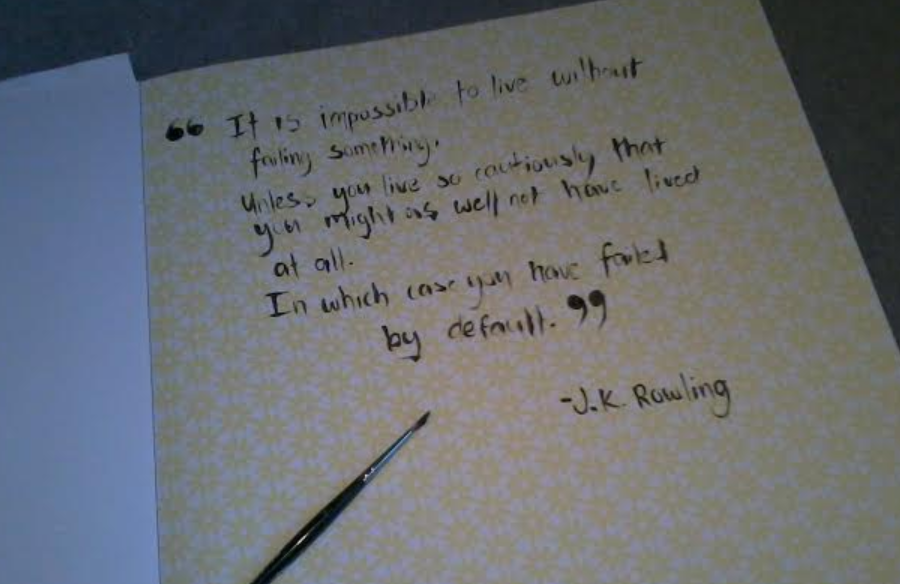 “ It is impossible to live without
failing something.
Unless you live so cautiously that
you might as well not have lived
at all.
In which case you have failed
by default. ”
-J.K. Rowling